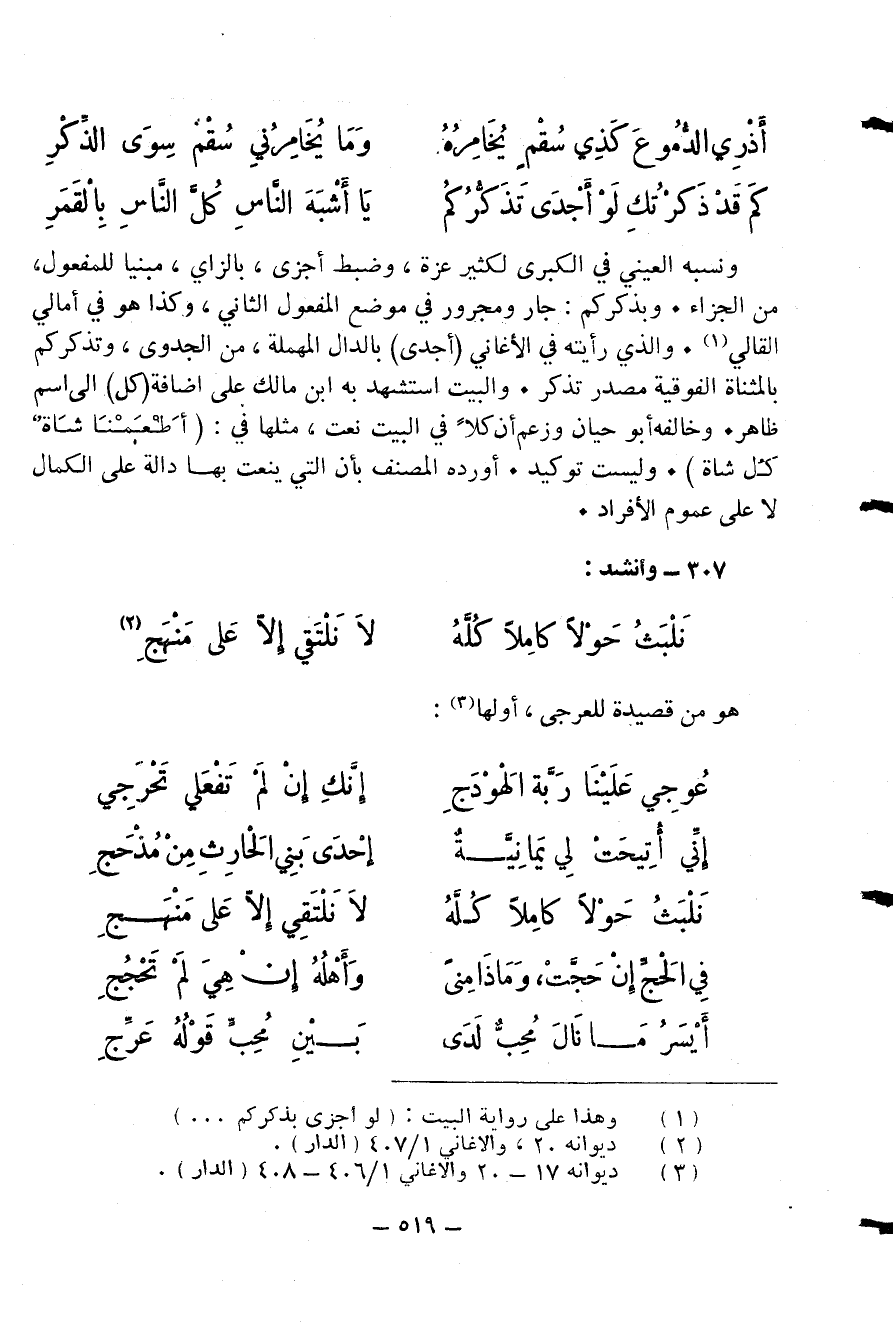 أَذْرِي الدُّمُوعَ كَذِي سُقْمٍ يُخَامِرُهُ وَمَا يُخَامِرُنِي سُقْمٌ سِوَى الذِّكْرِ
كَمْ قَدْ ذَكَرْتُكِ لَوْ أُجْدَى تَذَكُّرُكُمْ يَا أَشْبَهَ النَّاسِ كُلَّ النَّاسِ بِالْقَمَرِ
ونسبه العيني في الكبرى لكثير عزة ، وضبط أجزى ، بالزاي ، مبنيا للمفعول،
من الجزاء • وبذكركم : جار ومجرور في موضع المفعول الثاني ، وكذا هو في أمالي
القالي(١) • والذي رأيته في الأغاني (أجدى) بالدال المهملة ، من الجدوى ، وتذكركم
بالمثناة الفوقية مصدر تذكر • والبيت استشهد به ابن مالك على اضافة(كل) الى اسم
ظاهر• وخالفه أبو حيان وزعم أن كلاً في البيت نعت ، مثلها في : ( أَطْعَمْنَا شَاةً
كلّ شاة ) • وليست توكيد • أورده المصنف بأن التي ينعت بهـا دالة على الكمال
لا على عموم الأفراد •
٣٠٧ – وأنشد :
نَلْبَثُ حَوْلاً كامِلاً كُلَّهُ لاَ نَلْتَقِي إلاّ عَلى مَنْهَجِ(٢)
هو من قصيدة للعرجى ، أولها(٣) :
عُوجِي عَلَيْنَا رَبَّة الهْوْدَجِ إنَّكِ إنْ لَمْ تَفْعَلي تَحْرَجِي
إنِّي أُتِيحَتْ لِي يَمانِيَّـــةٌ إحْدَى بَنِي الحَارِثِ مِنْ مُذْحَجِ
نَلْبَثُ حَوْلاً كامِلاً كُـلَّهُ لاَ نَلْتَقِي إلاّ عَلى مَنْهَـــجِ
فِي الحَجِّ إنْ حَجَّتْ، وَمَاذَا مِنىً وَأَهْلُهُ إن ْ هِيَ لَمْ تَحْجُجِ
أَيْسَرُ مَـــا نَالَ مُحِبٌّ لَدَى بَـــيْنِ مُحِبٍّ قَوْلُهُ عَرِّجِ
(١) وهذا على رواية البيت : ( لو أجزى بذكركم ... )
(٢) ديوانه ٢٠ ، والاغاني ٤٠٧/١ ( الدار ) .
(٣) ديوانه ١٧ – ٢٠ والاغاني ٤٠٦/١ – ٤٠٨ ( الدار ) .
– ٥١٩ –